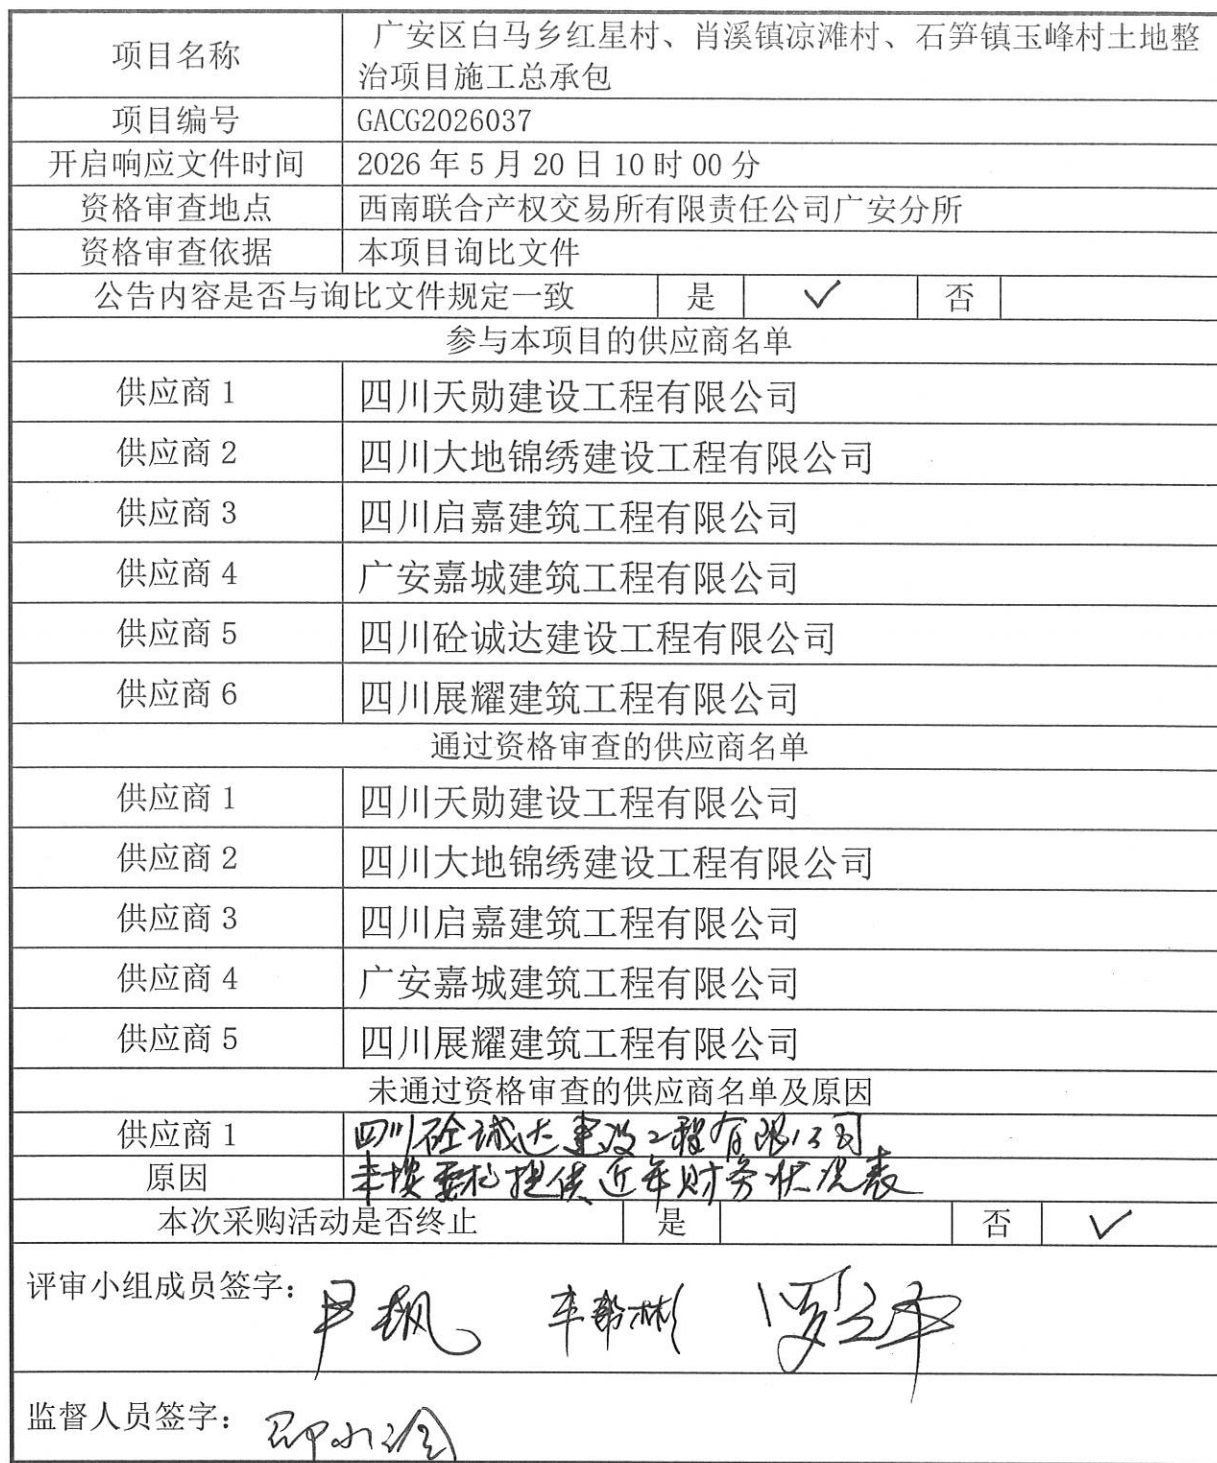 项目名称
广安区白马乡红星村、肖溪镇凉滩村、石笋镇玉峰村土地整
治项目施工总承包
项目编号 GACG2026037
开启响应文件时间 2026年5月20日10时00分
资格审查地点 西南联合产权交易所有限责任公司广安分所
资格审查依据 本项目询比文件
公告内容是否与询比文件规定一致 是 ✓ 否
参与本项目的供应商名单
供应商1 四川天勋建设工程有限公司
供应商2 四川大地锦绣建设工程有限公司
供应商3 四川启嘉建筑工程有限公司
供应商4 广安嘉城建筑工程有限公司
供应商5 四川砼诚达建设工程有限公司
供应商6 四川展耀建筑工程有限公司
通过资格审查的供应商名单
供应商1 四川天勋建设工程有限公司
供应商2 四川大地锦绣建设工程有限公司
供应商3 四川启嘉建筑工程有限公司
供应商4 广安嘉城建筑工程有限公司
供应商5 四川展耀建筑工程有限公司
未通过资格审查的供应商名单及原因
供应商1 四川砼诚达建设工程有限公司
原因 未按要求提供近年财务状况表
本次采购活动是否终止 是 否 ✓
评审小组成员签字：
监督人员签字：